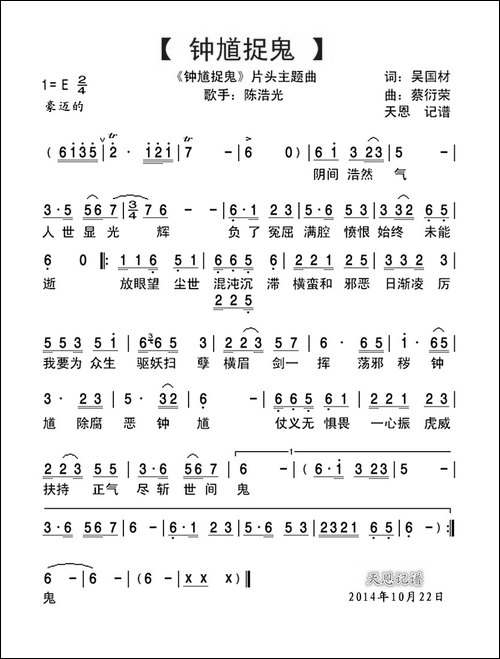 【 钟馗捉鬼 】
1=E 2/4
《钟馗捉鬼》片头主题曲
词：吴国材
豪迈的
歌手：陈浩光
曲：蔡衍荣
天恩 记谱
( 6 1 3 5 | 2 · 1 2 1 | 7 - | 6 0 ) | 6 1 3 2 3 | 5 - |
阴间 浩然 气
3 · 5 5 6 7 | 3/4 1 7 6 - | 6 · 1 2 3 | 5 3 2 3 | 3 3 2 6 5 |
人 世 显 光 辉 负 了 冤屈 满腔 愤恨 始终 未能
6 0 ‖: 1 1 6 5 1 | 6 6 5 5 | 6 · 1 2 3 | 1 2 3 3 2 3 |
逝 放眼望 尘世 混沌沉 滞 横蛮和 邪恶 日渐凌 厉
2 2 5
5 5 3 5 1 | 6 6 5 5 | 6 1 2 2 3 | 5 · 3 5 | 2 3 3 5 6 |
我要为 众生 驱妖扫 孽 横眉 剑一 挥 荡邪 秽 钟
3 · 2 3 | 5 · 3 2 | 6 - | 6 6 5 1 1 | 2 3 1 2 3 |
馗 除腐 恶 钟 馗 仗义无 惧畏 一心振 虎威
2 2 3 5 5 | 6 5 1 7 | 6 - | ( 6 · 1 3 2 3 | 5 - |
扶持 正气 尽斩 世间 鬼
3 · 6 5 6 7 | 6 - | 6 · 1 2 3 | 5 3 2 3 | 2 3 2 1 6 5 | 6 - ) :‖
6 - | 6 - | ( 6 - | x x ) ‖
鬼
天恩记谱
2014年10月22日